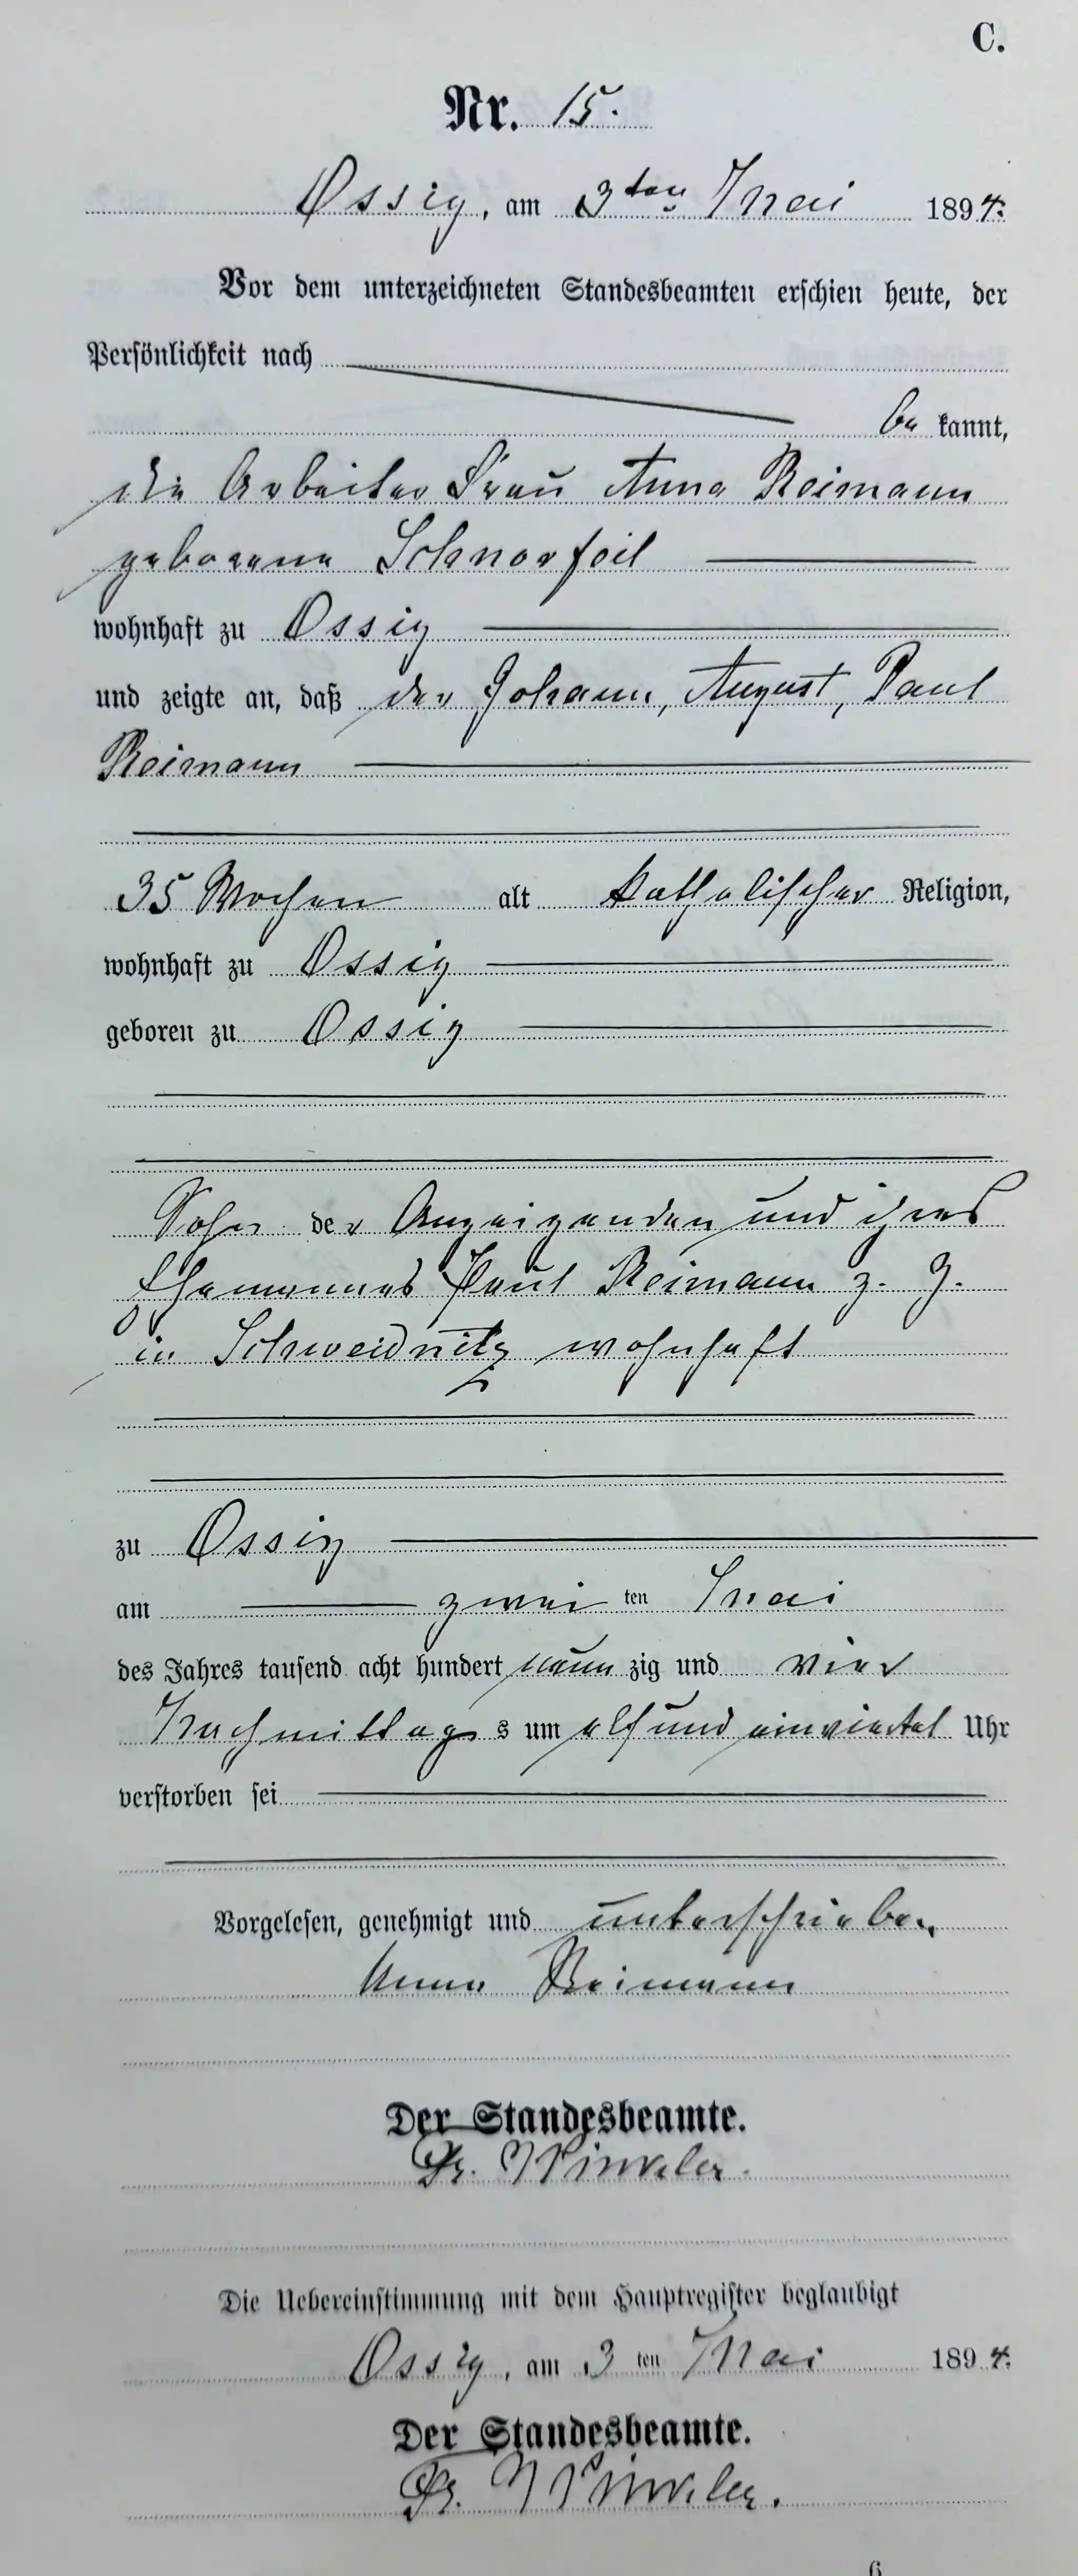 C.
Nr. 15.
Ossig, am 3ten Mai 1894.
Vor dem unterzeichneten Standesbeamten erschien heute, der
Persönlichkeit nach
be kannt,
die Arbeiter Frau Anna Reimann
geborene Schnorfeil
wohnhaft zu Ossig
und zeigte an, daß der Johann, August, Paul
Reimann
35 Wochen alt katholischer Religion,
wohnhaft zu Ossig
geboren zu Ossig
Sohn der Anzeigenden und ihres
Ehemannes Paul Reimann z. Z.
in Schweidnitz wohnhaft
zu Ossig
am zwei ten Mai
des Jahres tausend acht hundert neun zig und vier
Nachmittag s um elf und einviertel Uhr
verstorben sei
Vorgelesen, genehmigt und unterschrieben
Anna Reimann
Der Standesbeamte.
Fr. Winkler.
Die Uebereinstimmung mit dem Hauptregister beglaubigt
Ossig, am 3 ten Mai 1894.
Der Standesbeamte.
Fr. Winkler.
6